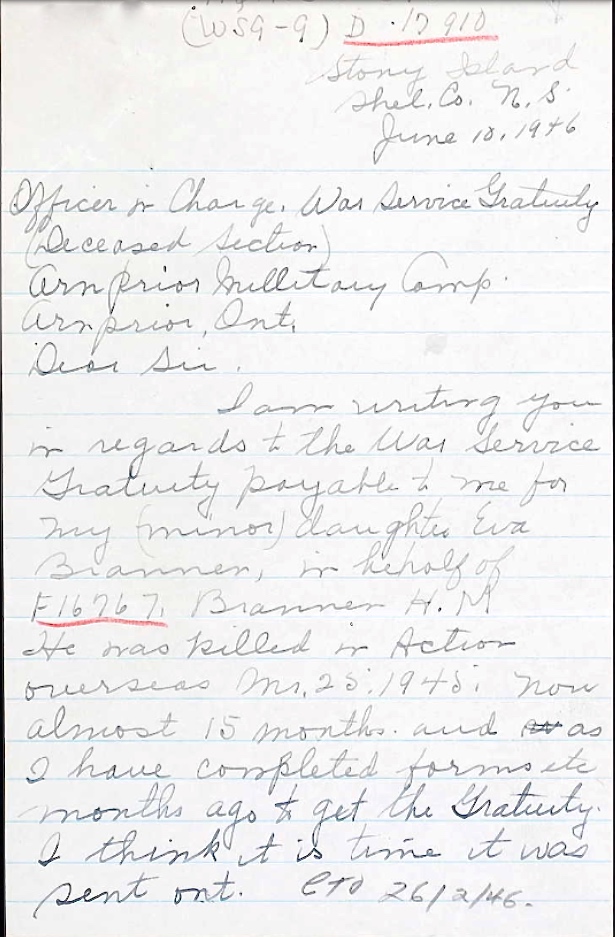 (WSG-9) D.17910
Stony Island
Shel. Co. N. S.
June 10, 1946
Officer in Charge, War Service Gratuity
(Deceased Section)
Arnprior Millitary Camp.
Arnprior, Ont.
Dear Sir.
I am writing you
in regards to the War Service
Gratuity payable to me for
my (minor) daughter Eva
Branner, in behalf of
F16767, Branner H. M
He was killed in Action
overseas Mr. 25. 1945. Now
almost 15 months. and as
I have completed forms etc
months ago to get the Gratuity.
I think it is time it was
sent out. 26/2/46.